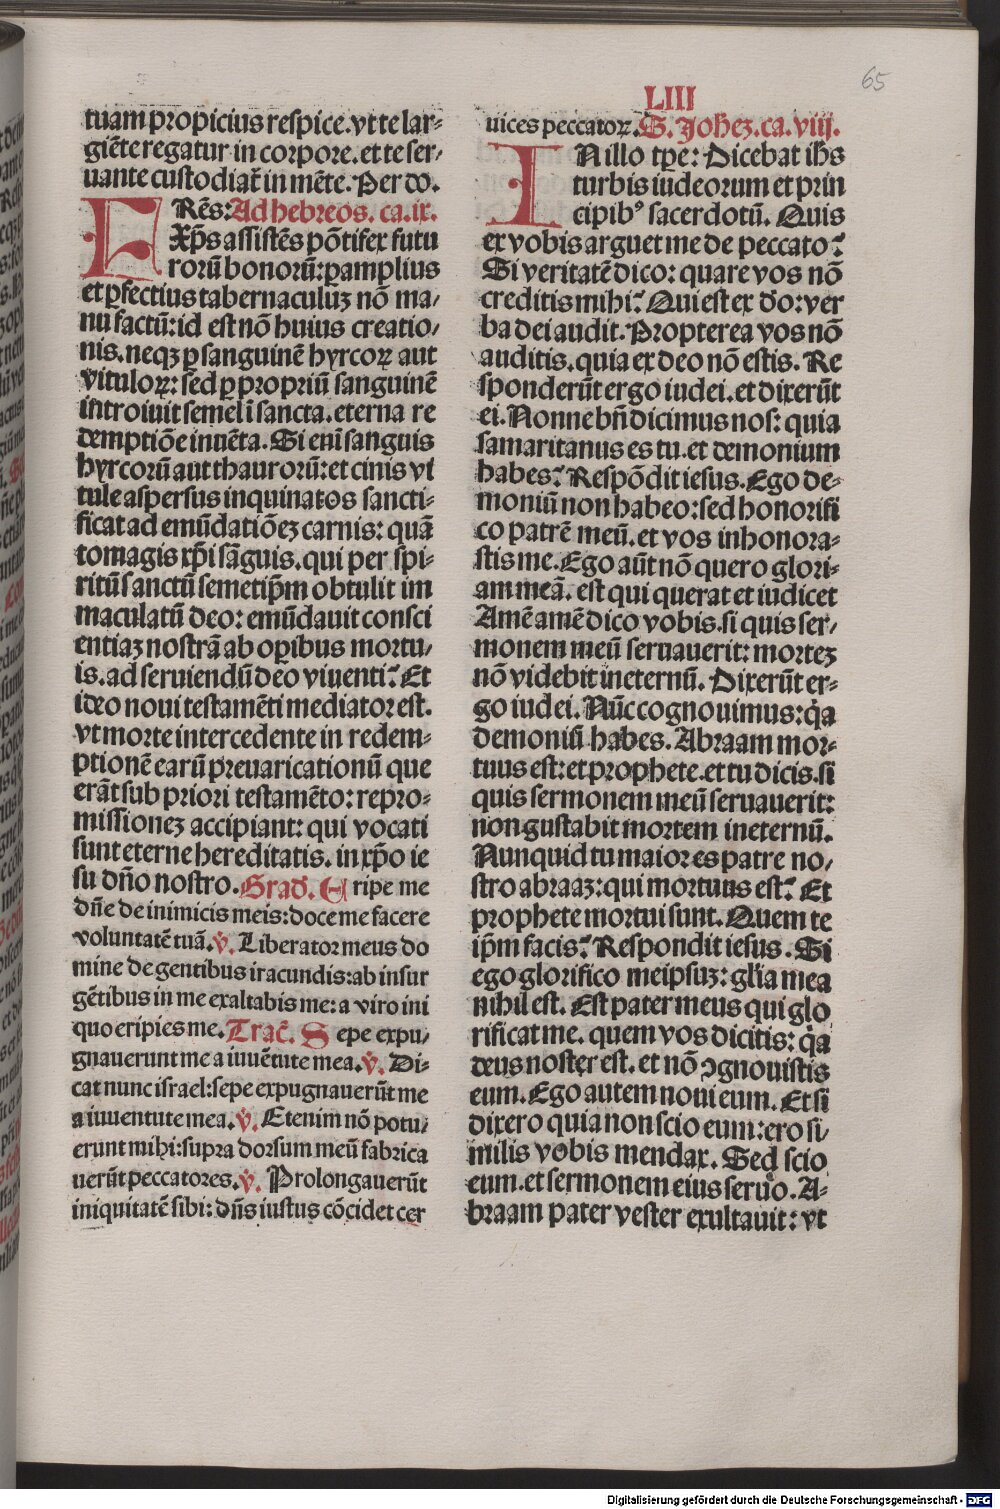 65
LIII
tuam propicius respice. vt te lar⸗
giēte regatur in corpore. et te ser⸗
uante custodiat᷑ in mēte. Per do.
FRēs: Ad hebreos. ca. ix.
Xp̄s assistēs pōtifex futu
rorū bonorū: ꝑ amplius
et ꝑfectius tabernaculuꝫ nō ma⸗
nu factū: id est nō huius creatio⸗
nis. neqꝫ ꝑ sanguinē hyrcoꝝ aut
vituloꝝ: sed ꝑ propriū sanguinē
introiuit semel ī sancta. eterna re
demptiōe inuēta. Si enī sanguis
hyrcorū aut thaurorū: et cinis vi
tule aspersus inquinatos sancti⸗
ficat ad emūdatiōeꝫ carnis: quā
tomagis xp̄i sāguis. qui per spi⸗
ritū sanctū semetip̄m obtulit im
maculatū deo: emūdauit consci
entiaꝫ nostrā ab oꝑibus mortu⸗
is. ad seruiendū deo viuenti? Et
ideo noui testamēti mediator est.
vt morte intercedente in redem⸗
ptionē earū preuaricationū que
erāt sub priori testamēto: repro⸗
missioneꝫ accipiant: qui vocati
sunt eterne hereditatis. in xp̄o ie
su dn̄o nostro. Grad̄. Eripe me
dn̄e de inimicis meis: doce me facere
voluntatē tuā. v̄. Liberator meus do
mine de gentibus iracundis: ab insur
gētibus in me exaltabis me: a viro ini
quo eripies me. Trac̄. Sepe expu⸗
gnauerunt me a iuuētute mea. v̄. Di⸗
cat nunc israel: sepe expugnauerūt me
a iuuentute mea. v̄. Etenim nō potu⸗
erunt mihi: supra dorsum meū fabrica
uerūt peccatores. v̄. Prolongauerūt
iniquitatē sibi: dn̄s iustus cōcidet cer
uices peccatoꝝ. S. Joheꝫ. ca. viij.
IN illo tꝑe: Dicebat ihs
turbis iudeorum et prin
cipibꝰ sacerdotū. Quis
ex vobis arguet me de peccato?
Si veritatē dico: quare vos nō
creditis mihi? Qui est ex d̄o: ver
ba dei audit. Propterea vos nō
auditis. quia ex deo nō estis. Re
sponderūt ergo iudei. et dixerūt
ei. Nonne bn̄ dicimus nos: quia
samaritanus es tu. et demonium
habes? Respōdit iesus. Ego de⸗
moniū non habeo: sed honorifi
co patrē meū. et vos inhonora⸗
stis me. Ego aūt nō quero glori⸗
am meā. est qui querat et iudicet
Amē amē dico vobis. si quis ser⸗
monem meū seruauerit: morteꝫ
nō videbit ineternū. Dixerūt er⸗
go iudei. Nūc cognouimus: q̄a
demoniū habes. Abraam mor⸗
tuus est: et prophete. et tu dicis. si
quis sermonem meū seruauerit:
non gustabit mortem ineternū.
Nunquid tu maior es patre no⸗
stro abraaꝫ: qui mortuus est? Et
prophete mortui sunt. Quem te
ip̄m facis? Respondit iesus. Si
ego glorifico meipsuꝫ: gl̄ia mea
nihil est. Est pater meus qui glo
rificat me. quem vos dicitis: q̄a
deus noster est. et nō ↄgnouistis
eum. Ego autem noui eum. Et si
dixero quia non scio eum: ero si⸗
milis vobis mendax. Sed scio
eum. et sermonem eius seruo. A⸗
braam pater vester exultauit: vt
Digitalisierung gefördert durch die Deutsche Forschungsgemeinschaft - DFG